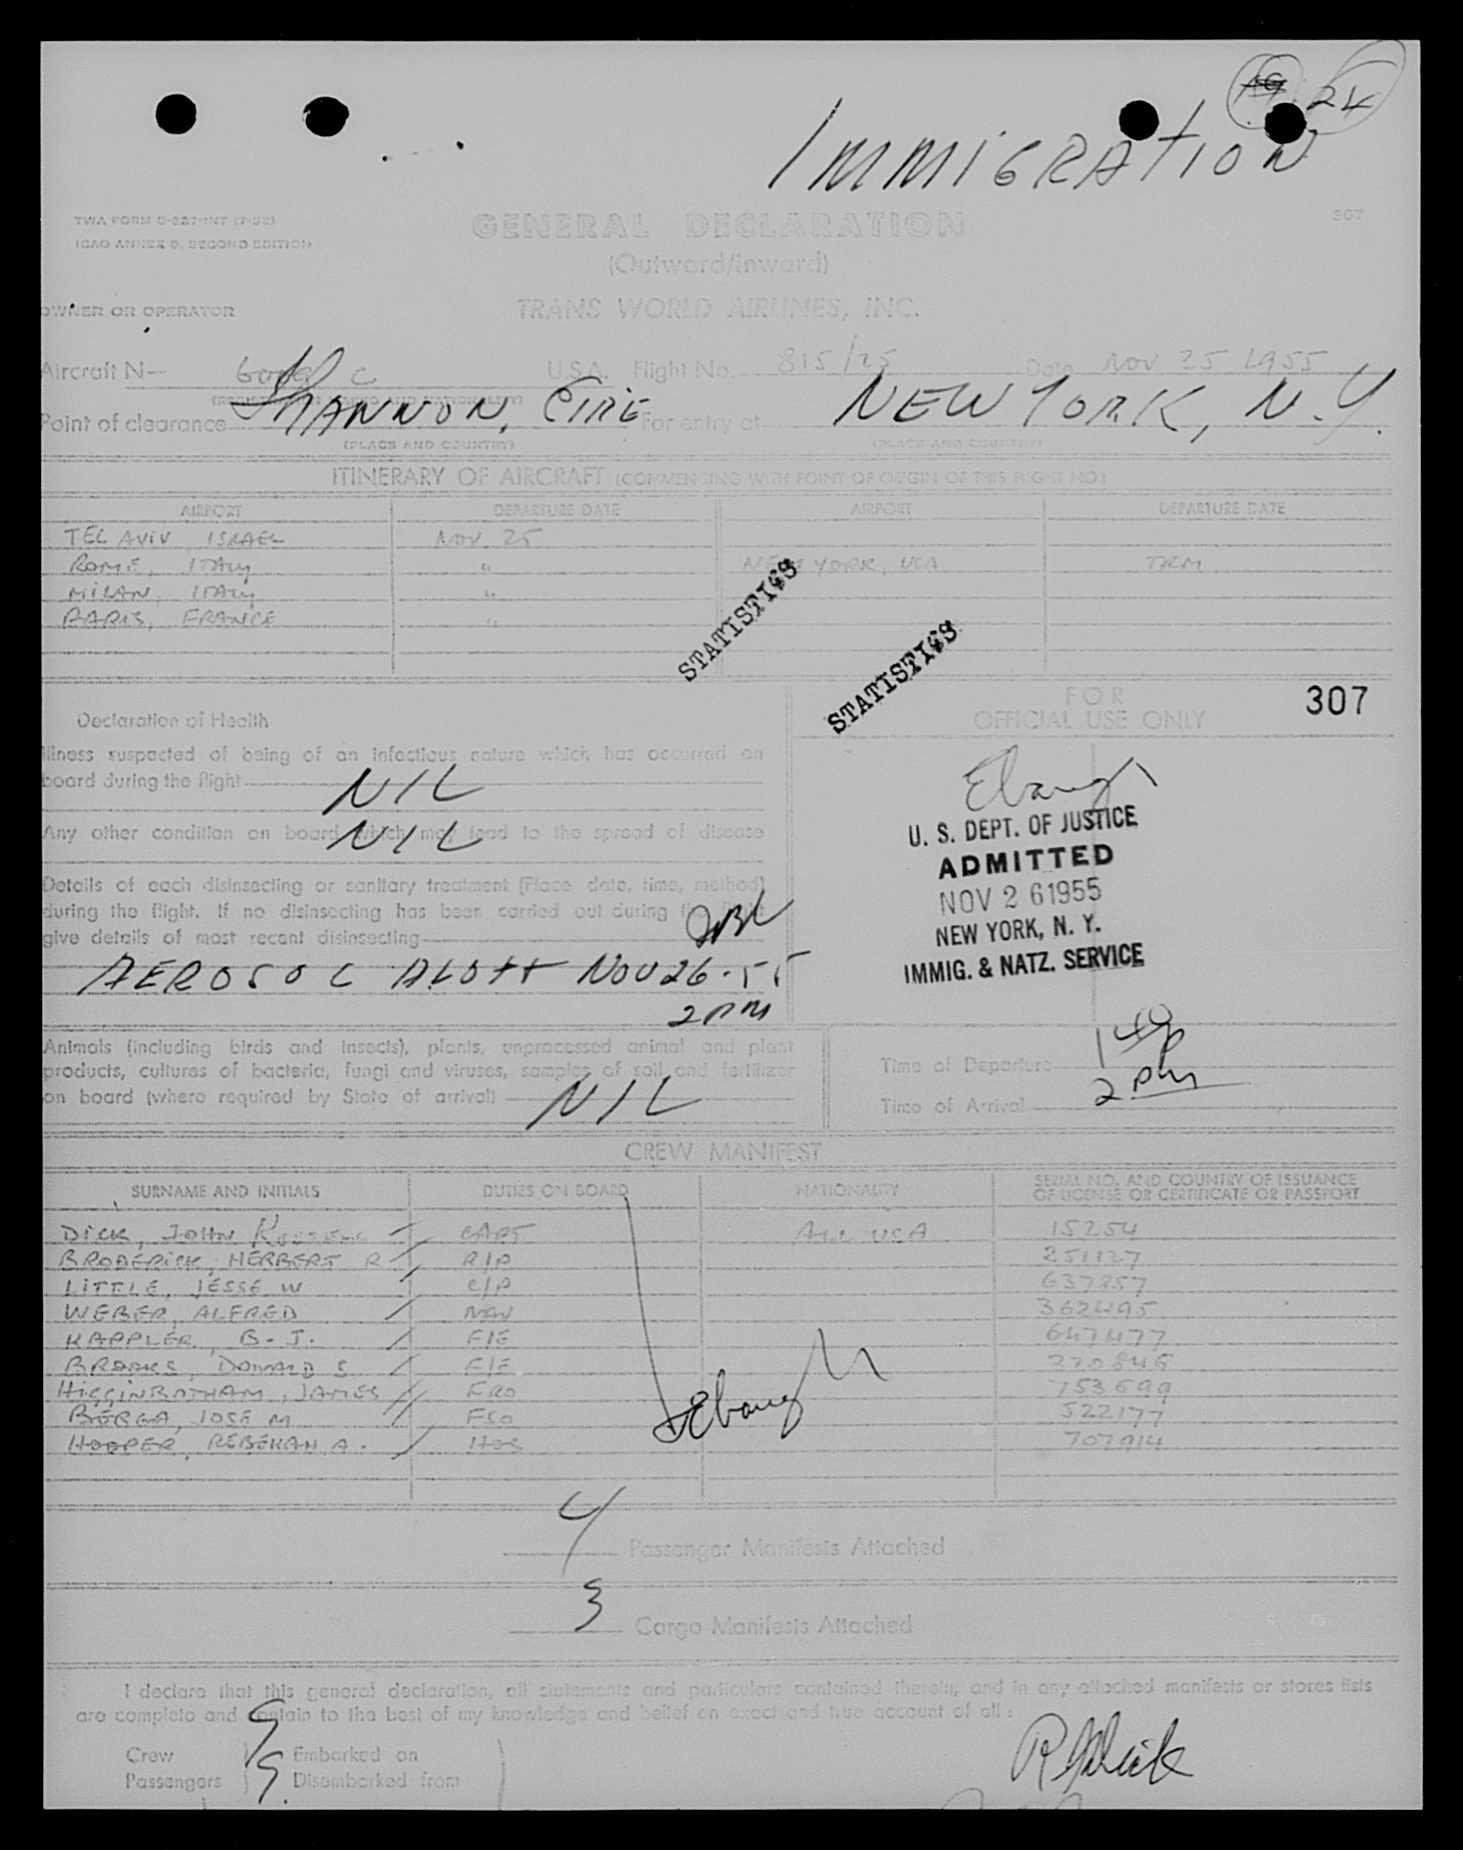 24
IMMIGRATION
TWA FORM
ICAO ANNEX 9, SECOND EDITION
GENERAL DECLARATION
307
(Outward/Inward)
OWNER OR OPERATOR
TRANS WORLD AIRLINES, INC.
Aircraft N— C U.S.A. Flight No. 815/25 Date NOV 25 1955
Point of clearance SHANNON, EIRE For entry at NEW YORK, N.Y.
(PLACE AND COUNTRY) (PLACE AND COUNTRY)
ITINERARY OF AIRCRAFT (COMMENCING WITH POINT OF ORIGIN OF THIS FLIGHT NO.)
AIRPORT DEPARTURE DATE AIRPORT DEPARTURE DATE
TEL AVIV ISRAEL NOV 25
ROME, ITALY " NEW YORK, USA TRM
MILAN, ITALY "
PARIS, FRANCE "
STATISTICS
STATISTICS
Declaration of Health
FOR
OFFICIAL USE ONLY
307
Illness suspected of being of an infectious nature which has occurred on
board during the flight NIL
Any other condition on board which may lead to the spread of disease
NIL
Details of each disinsecting or sanitary treatment (Place, date, time, method)
during the flight. If no disinsecting has been carried out during the flight
give details of most recent disinsecting
AEROSOL NOV 26-55
2 PM
U. S. DEPT. OF JUSTICE
ADMITTED
NOV 26 1955
NEW YORK, N. Y.
IMMIG. & NATZ. SERVICE
Animals (including birds and insects), plants, unprocessed animal and plant
products, cultures of bacteria, fungi and viruses, samples of soil and fertilizer
on board (where required by State of arrival) NIL
Time of Departure 140P
Time of Arrival 2 PM
CREW MANIFEST
SURNAME AND INITIALS DUTIES ON BOARD NATIONALITY SERIAL NO. AND COUNTRY OF ISSUANCE
OF LICENSE OR CERTIFICATE OR PASSPORT
DICK, JOHN CAPT ALL USA 15254
BRODERICK, HERBERT R R/P 251127
LITTLE, JESSE W C/P 637857
WEBER, ALFRED NAV 362495
KAPPLER, B. J. F/E 647477
BROOKS, DONALD S F/E 370846
HIGGINBOTHAM, JAMES FRO 753699
BERGA, JOSE M FSO 522177
HOOPER, REBEKAH A. HOS 707914
4 Passenger Manifests Attached
3 Cargo Manifests Attached
I declare that this general declaration, all statements and particulars contained therein, and in any attached manifests or stores lists
are complete and contain to the best of my knowledge and belief an exact and true account of all:
Crew Embarked on
Passengers Disembarked from